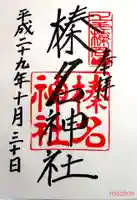 奉拝
榛名神社
平成二十九年十月三十日
榛名
神社